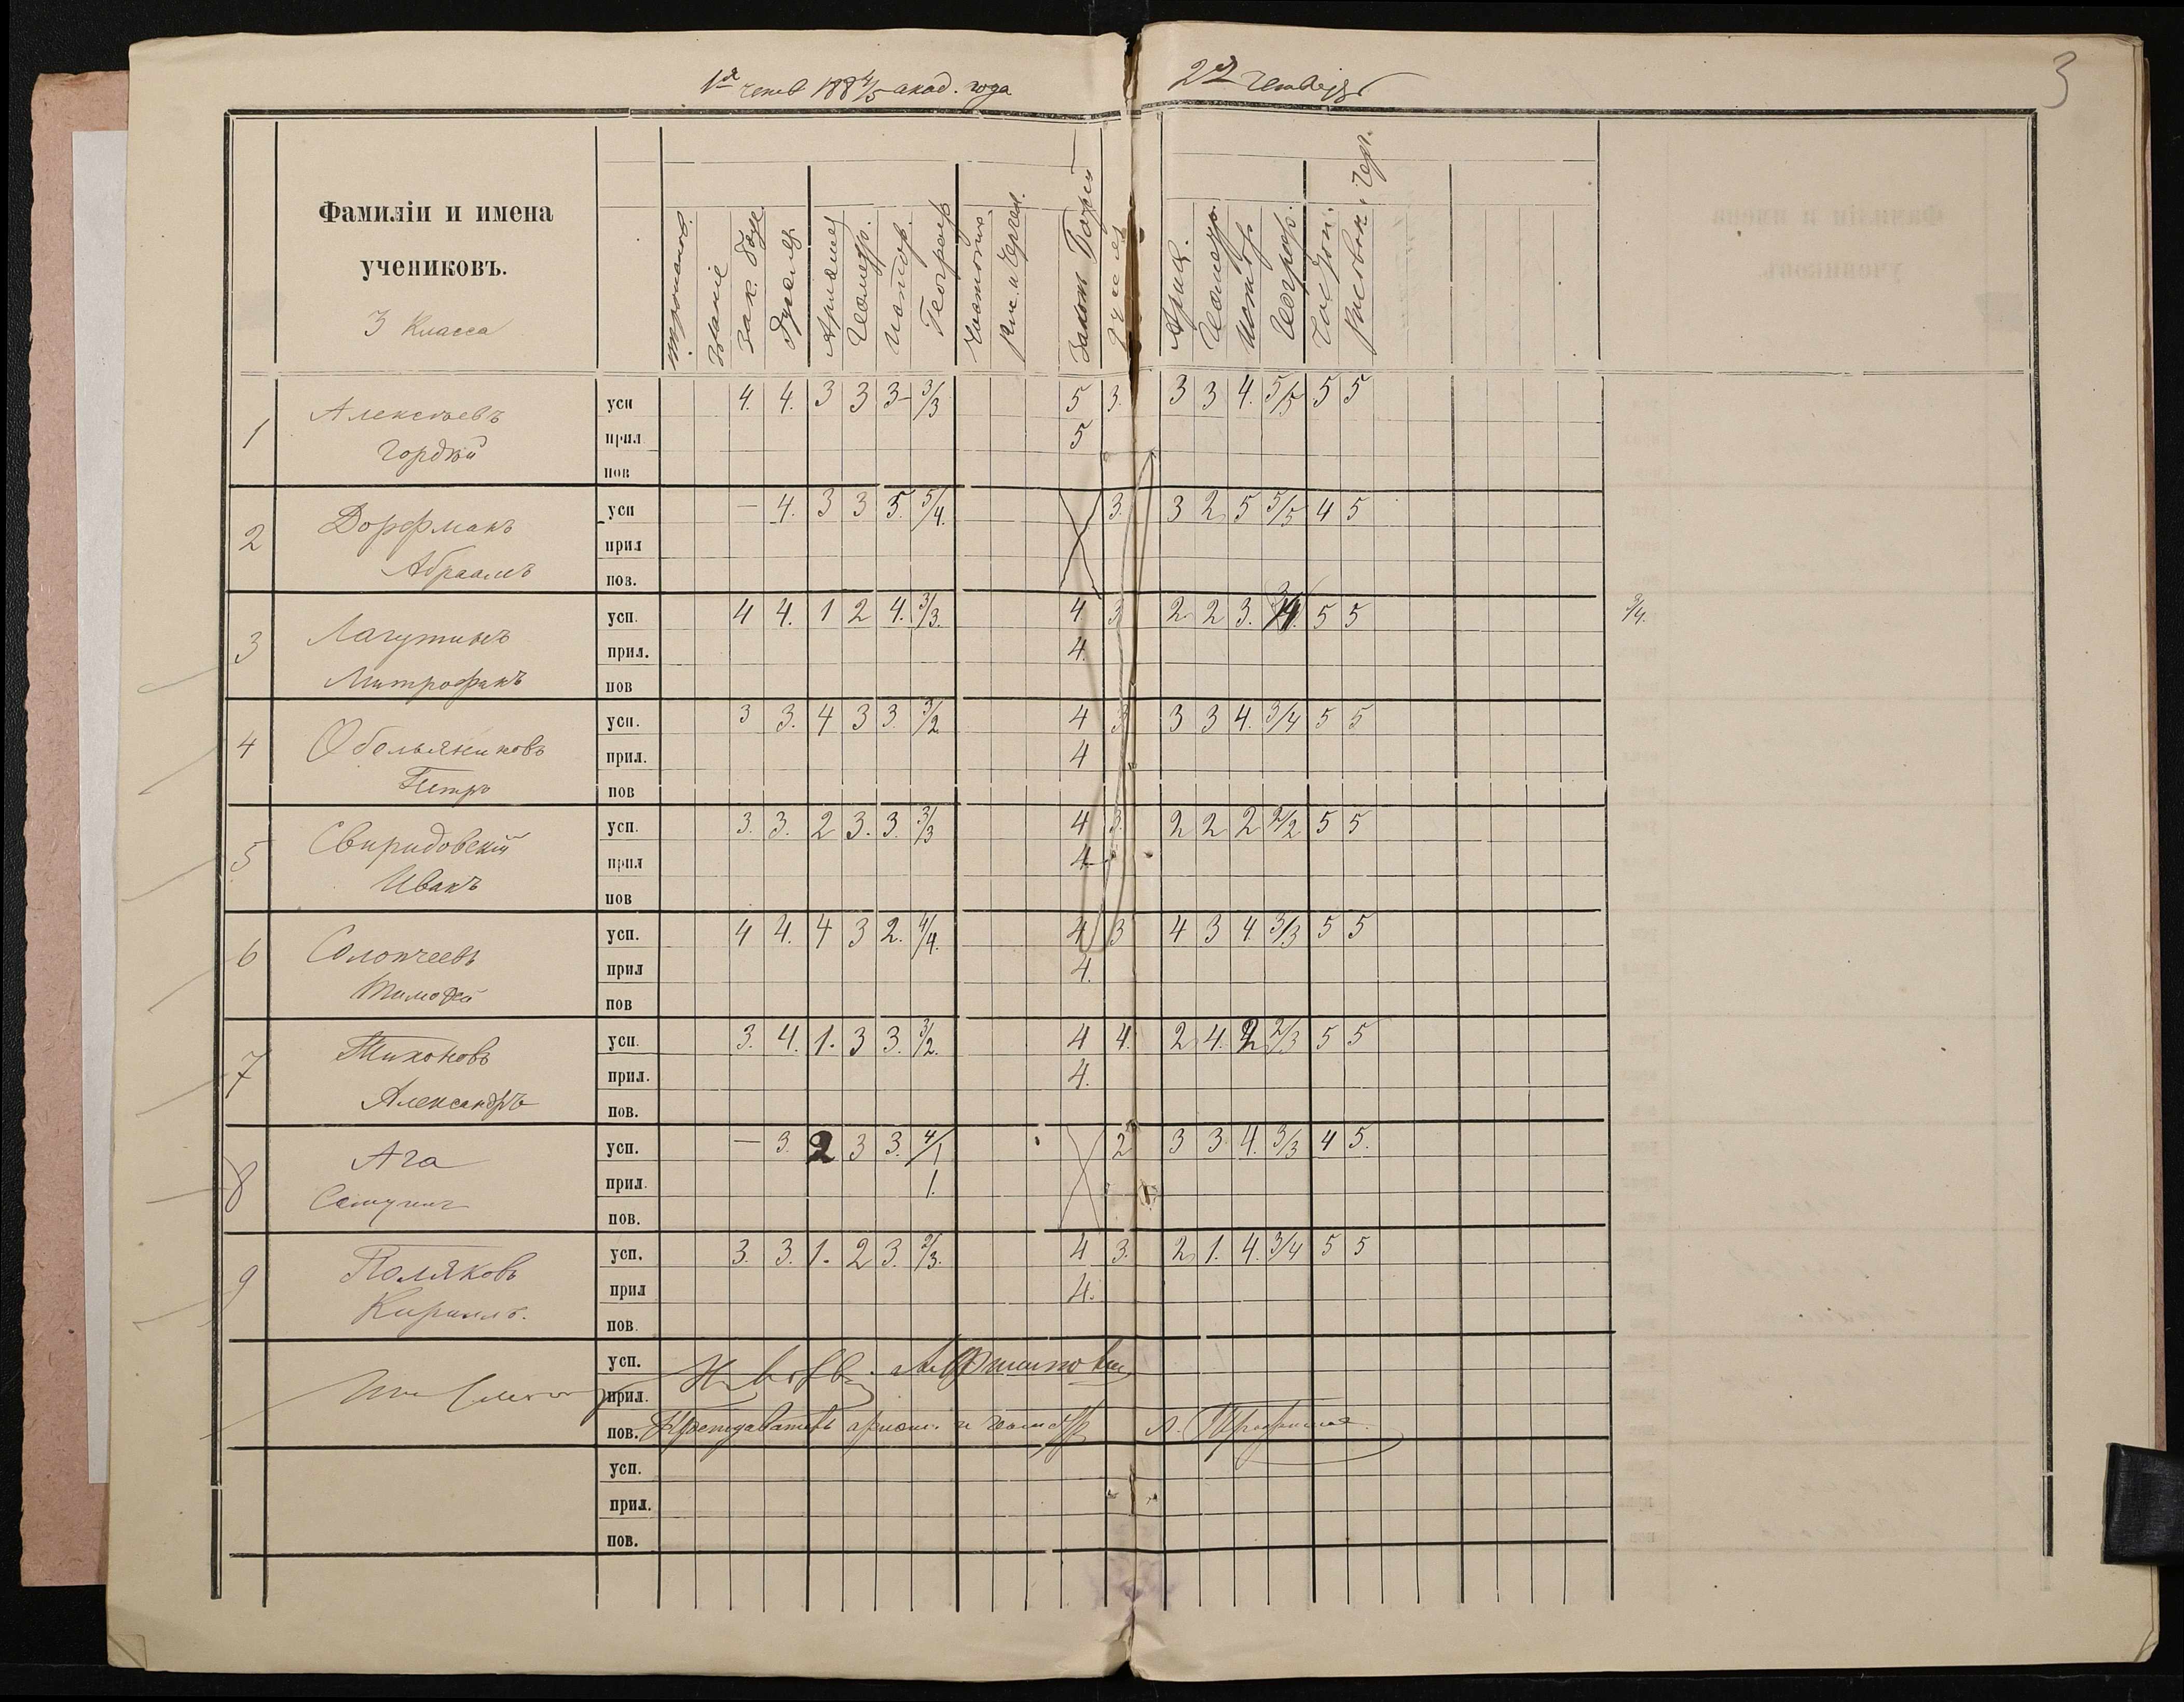 1я четв 1884/5 акад. года
2я четверть
3
Фамиліи и имена
учениковъ.
3 Класса
Зак. Бож.
Русскій
Ариөмет
Геометр.
Истор.
Географ
Чистопис.
Рис. и Черчен.
Законъ Божій
Русск
Ариө.
Геометр.
Истор.
Географ.
Чистоп.
Рисован. Черч.
1 Алексѣевъ усп 4. 4. 3 3 3- 3/3 5 3. 3 3 4. 5/5 5 5
Гордѣй прил 5
пов
2 Дорфманъ усп — 4. 3 3 5. 5/4. 3. 3 2 5 5/5 4 5
Абраамъ прил
пов.
3 Лагутинъ усп. 4 4. 1 2 4. 3/3. 4 3 2. 2 3. 5 5 3/4.
Митрофанъ прил. 4.
пов
4 Обольяниковъ усп. 3 3. 4 3 3. 3/2 4 3 3 3 4. 3/4 5 5
Петръ прил. 4
пов
5 Свиридовскій усп. 3. 3. 2 3. 3. 3/3 4 3. 2 2 2 2/2 5 5
Иванъ прил 4
пов
6 Солопчеевъ усп. 4 4. 4 3 2. 4/4. 4 3 4 3 4. 3/3 5 5
Тимоөей прил 4.
пов
7 Тихоновъ усп. 3. 4. 1. 3 3. 3/2. 4 4. 2 4. 2 2/3 5 5
Александръ прил. 4.
пов.
8 Ага усп. — 3. 2 3 3. 4/1 2 3 3. 4. 3/3 4 5.
прил. 1.
пов.
9 Поляковъ усп. 3. 3. 1. 2 3. 2/3. 4 3. 2 1. 4. 3/4 5 5
Кириллъ. прил 4.
пов.
усп.
прил.
пов. Преподаватель ариөм. и геометр А.
усп.
прил.
пов.